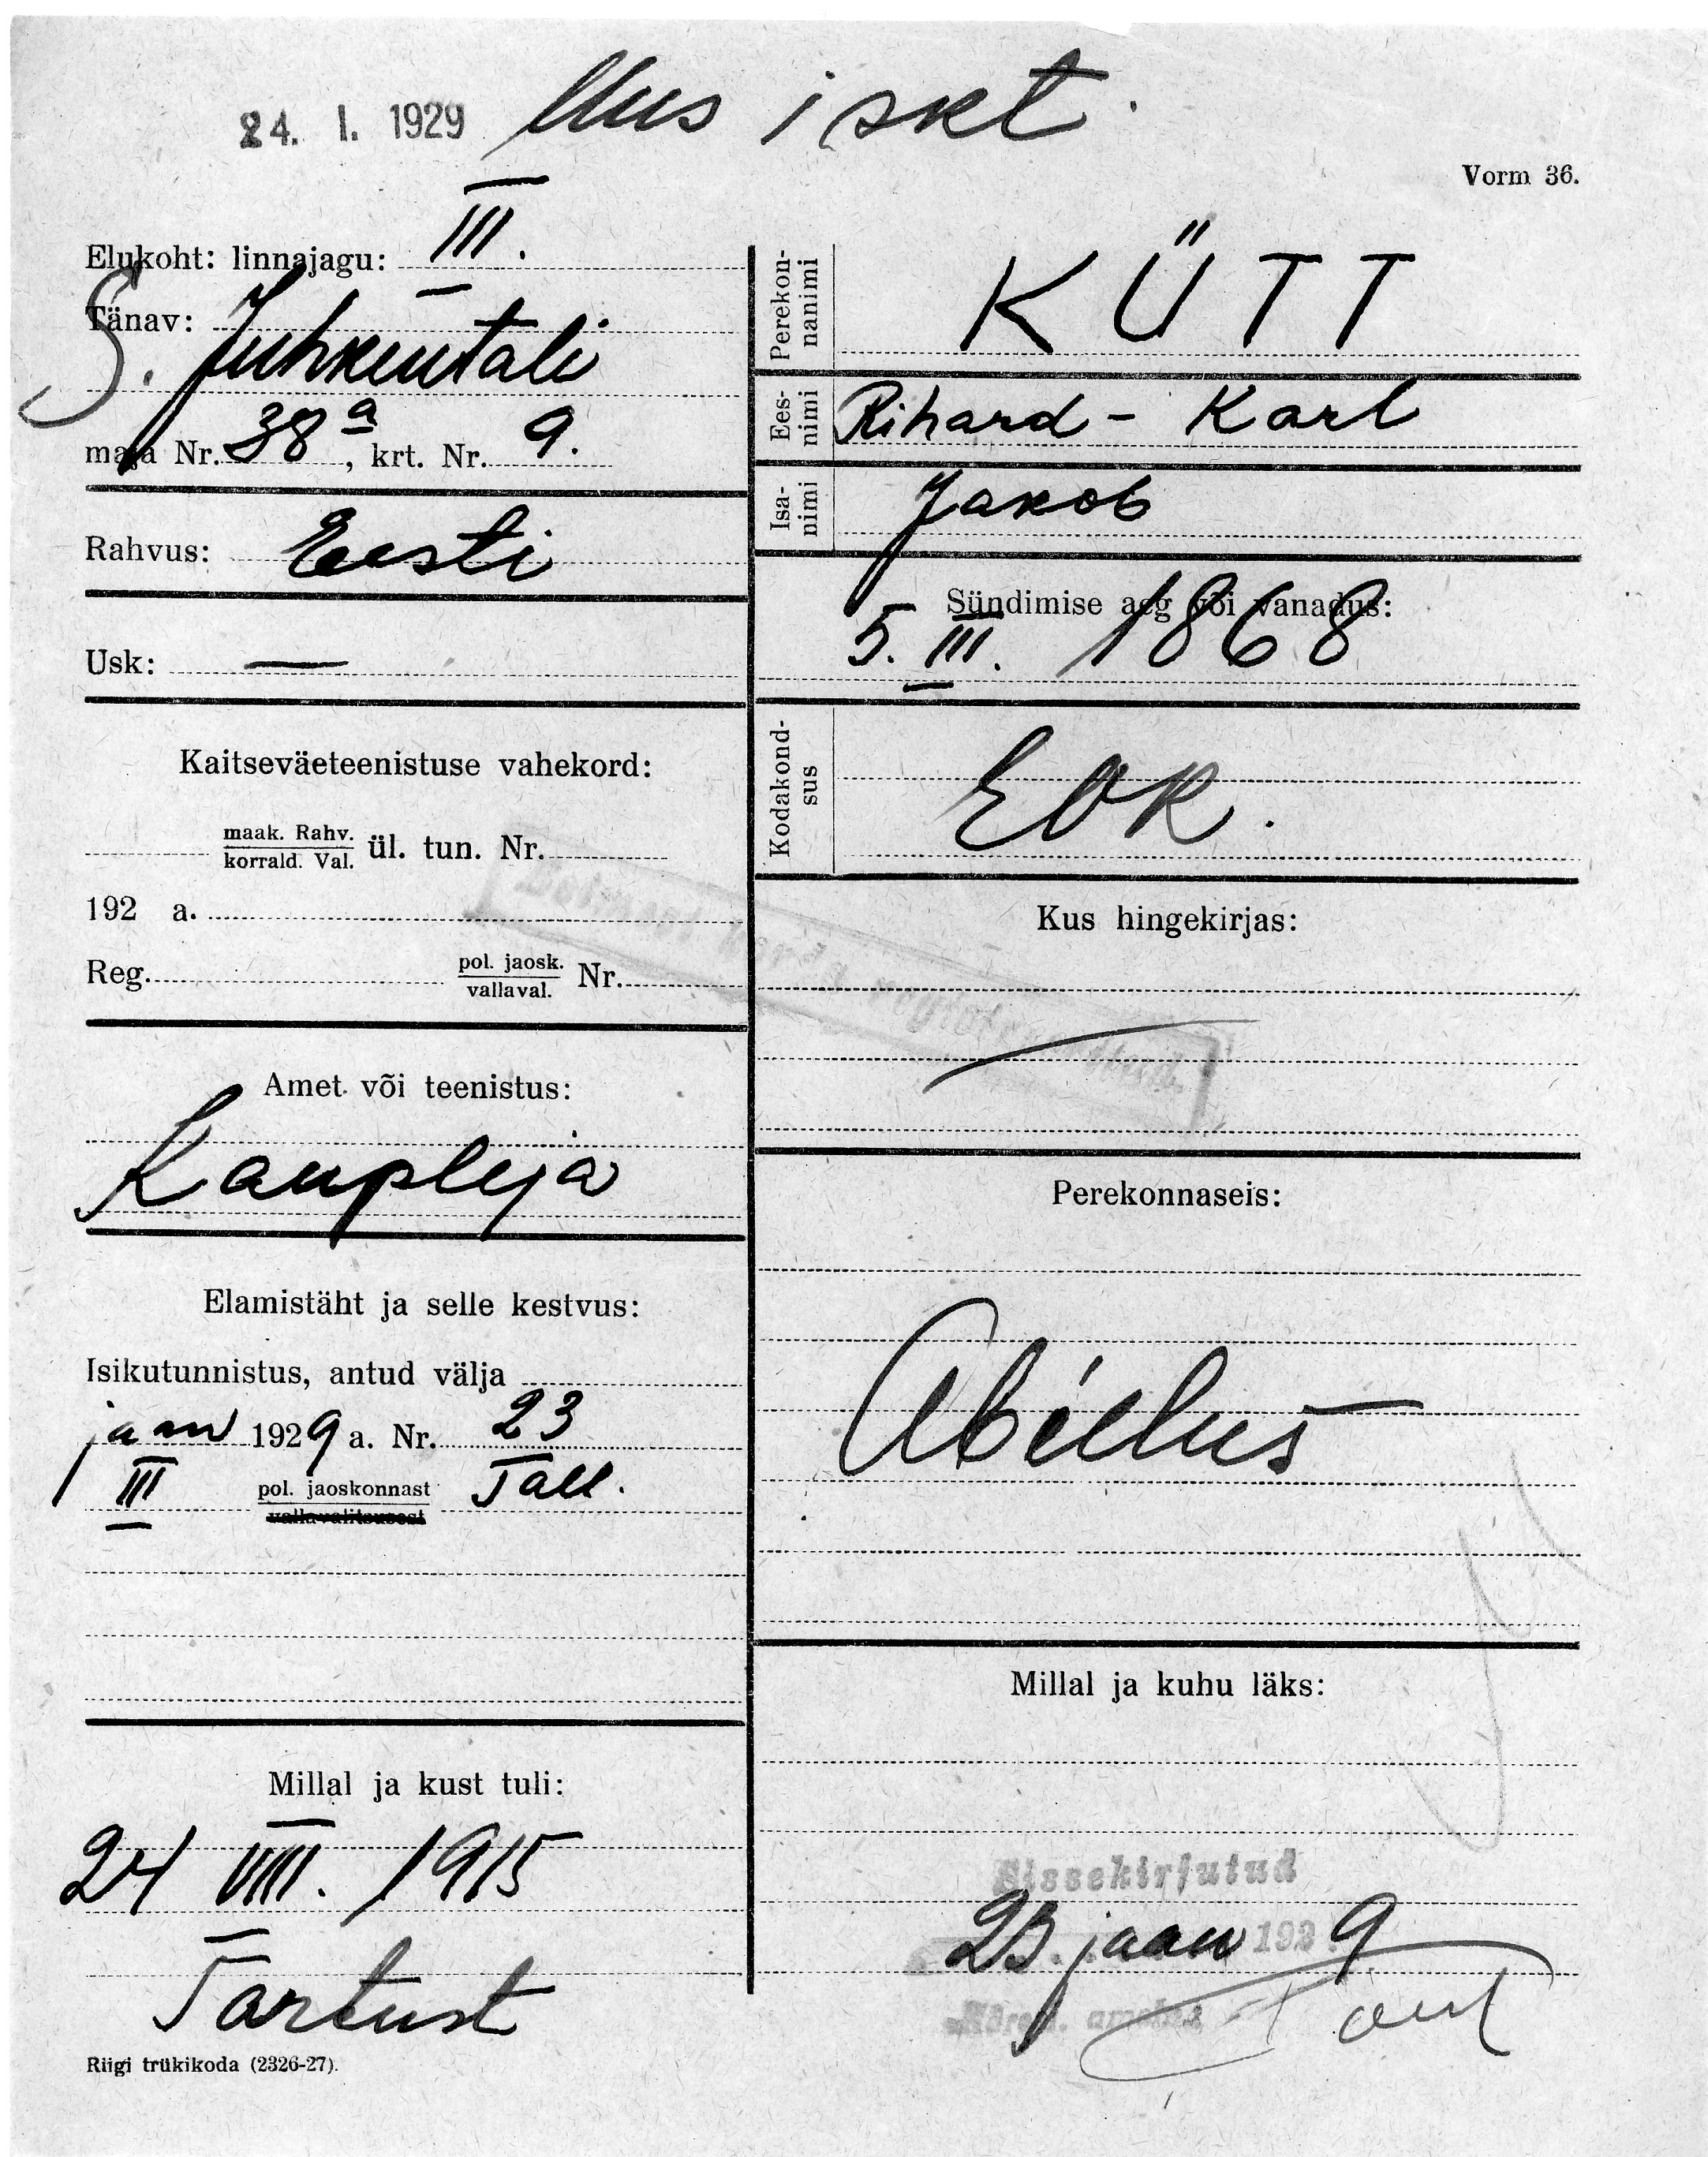 24. I. 1929 Uus iskt.
Vorm 36.
Elukoht: linnajagu: III.
Tänav:
S. Juhkentali
maja Nr. 38 a, krt. Nr. 9.
Rahvus: Eesti
Usk: —
Kaitseväeteenistuse vahekord:
maak. Rahv.
korrald. Val. ül. tun. Nr.
192 a.
Reg. pol. jaosk.
vallaval. Nr.
Amet või teenistus:
Kaupleja
Elamistäht ja selle kestvus:
Isikutunnistus, antud välja
jaan 1929 a. Nr. 23
III pol. jaoskonnast Tall.
vallavalitsusest
Millal ja kust tuli:
24 VIII. 1915
Tartust
Riigi trükikoda (2326-27).
Perekon-
nanimi
KÜTT
Ees-
nimi
Rihard - Karl
Isa-
nimi
Jakob
Sündimise aeg või vanadus:
5. III. 1868
Kodakond-
sus
EVK.
Kus hingekirjas:
Perekonnaseis:
Abielus
Millal ja kuhu läks:
Sissekirjutud
23 jaan 1929